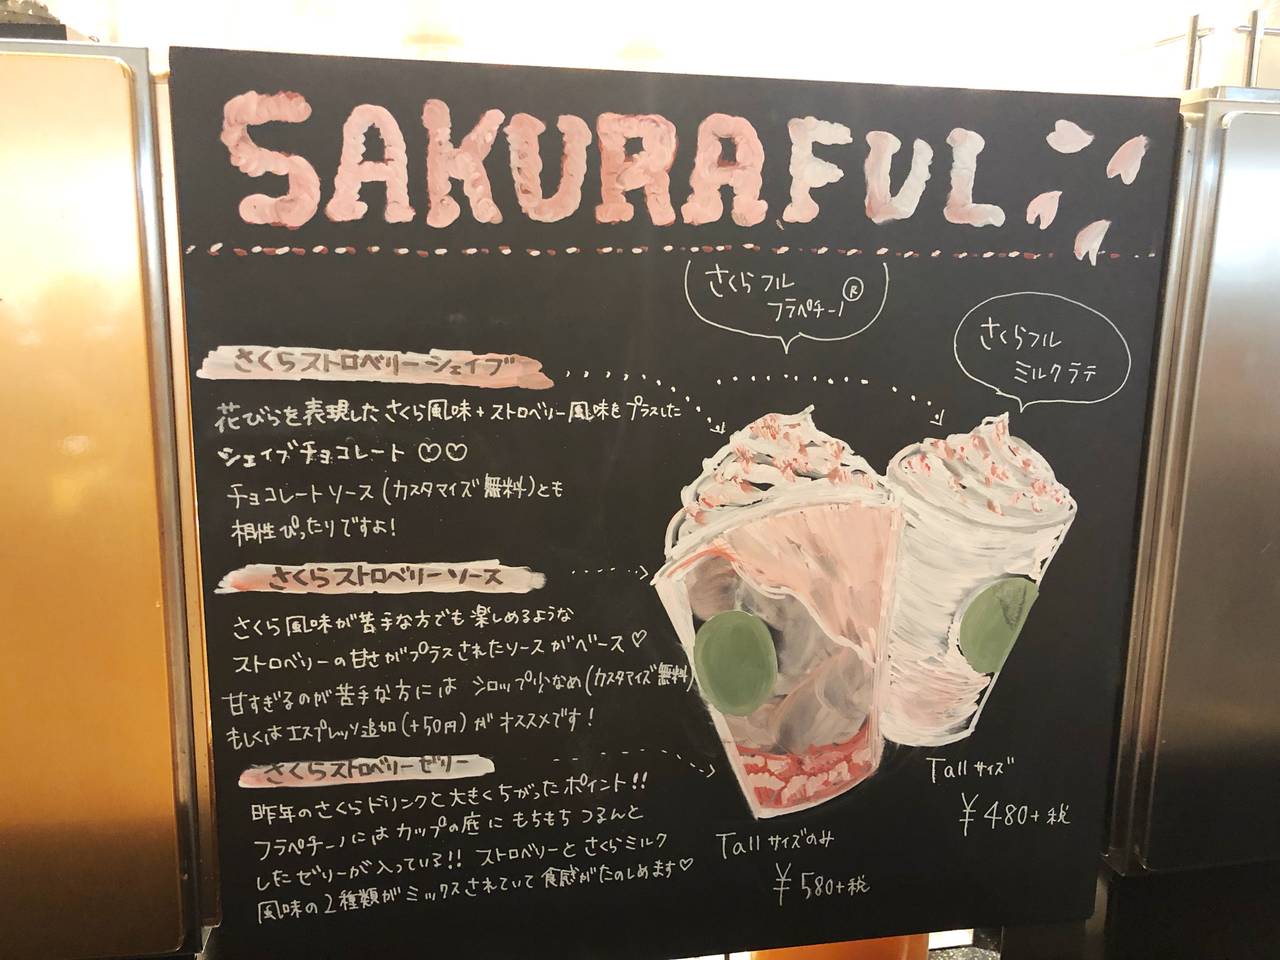 SAKURAFUL
さくらフル
フラペチーノ®
さくらフル
ミルクラテ
さくらストロベリーシェイブ
花びらを表現したさくら風味+ストロベリー風味をプラスした
シェイブチョコレート♡♡
チョコレートソース(カスタマイズ無料)とも
相性ぴったりですよ!
さくらストロベリーソース
さくら風味が苦手な方でも楽しめるような
ストロベリーの甘さがプラスされたソースがベース♡
甘すぎるのが苦手な方には シロップ少なめ(カスタマイズ無料)
もしくはエスプレッソ追加(+50円)がオススメです!
さくらストロベリーゼリー
昨年のさくらドリンクと大きくちがったポイント!!
フラペチーノにはカップの底にもちもちつるんと
したゼリーが入っている!! ストロベリーとさくらミルク
風味の2種類がミックスされていて食感がたのしめます♡
Tallサイズのみ
¥580+税
Tallサイズ
¥480+税